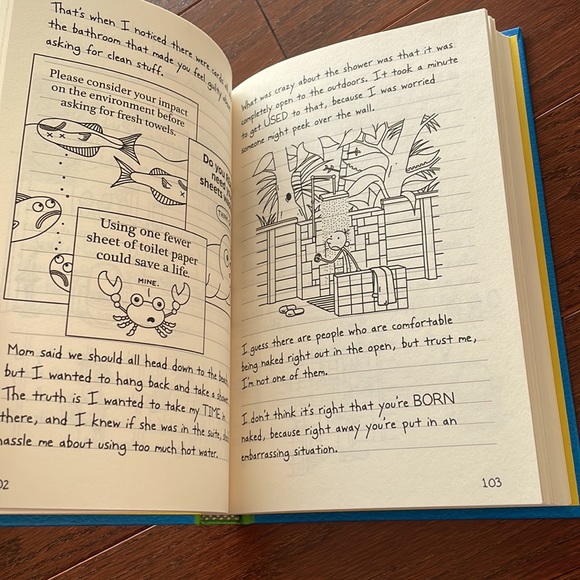 That's when I noticed there were cards all
the bathroom that made you feel guilty about
asking for clean stuff.
Please consider your impact
on the environment before
asking for fresh towels.
Do you
need
sheets
Using one fewer
sheet of toilet paper
could save a life.
MINE.
Mom said we should all head down to the beach,
but I wanted to hang back and take a shower.
The truth is I wanted to take my TIME in
there, and I knew if she was in the suite,
hassle me about using too much hot water.
02
What was crazy about the shower was that it was
completely open to the outdoors. It took a minute
to get USED to that, because I was worried
someone might peek over the wall.
I guess there are people who are comfortable
being naked right out in the open, but trust me,
I'm not one of them.
I don't think it's right that you're BORN
naked, because right away you're put in an
embarrassing situation.
103